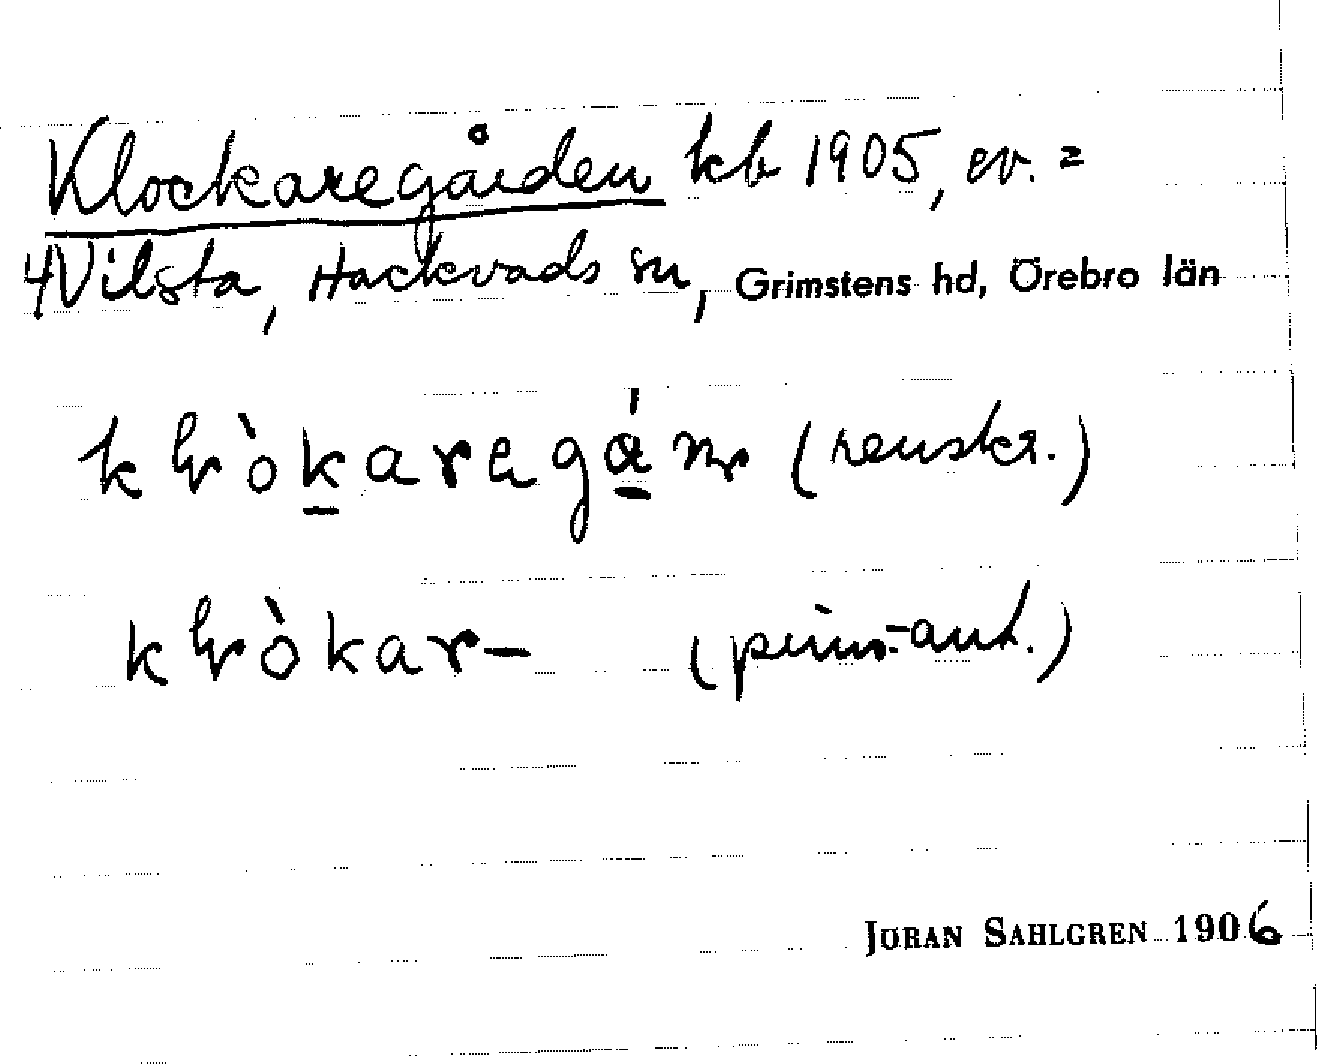 Klockaregården kb 1905, ev. =
4 Vilsta, Hackvads sn, Grimstens hd, Örebro län
(renskr.)
(prim.-ant.)
JÖRAN SAHLGREN 1906